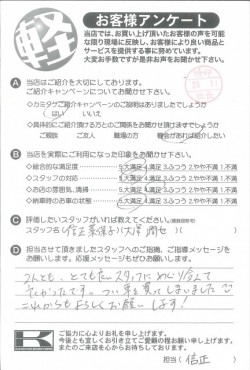 軽 お客様アンケート
当店では、お買い上げ頂いたお客様の声を可能な限り現場に反映し、お客様により良い商品とサービスを提供する事に努めています。
大変お手数ですが是非お声をお聞かせ下さい。
A 当店はご紹介を大切にしております。
ご紹介キャンペーンについてお聞かせ下さい。
・カミタケご紹介キャンペーンのご説明はありましたでしょうか
はい いいえ
・具体的にご紹介頂ける方とのご関係をお聞かせ頂けますでしょうか
ご親族 ご友人 職場の方 機会があれば紹介したい
B 当店を実際にご利用になった印象をお聞かせ下さい。
・総合的な満足度 5.大満足 4.満足 3.ふつう 2.やや不満 1.不満
・スタッフの対応 5.大満足 4.満足 3.ふつう 2.やや不満 1.不満
・お店の雰囲気、清掃 5.大満足 4.満足 3.ふつう 2.やや不満 1.不満
・納車時のお車の状態 5.大満足 4.満足 3.ふつう 2.やや不満 1.不満
C 評価したいスタッフがいれば教えてください。(複数回答可)
スタッフ名
D 担当させて頂きましたスタッフへのご指摘、ご指導メッセージをお願いします。応援メッセージもぜひお願いします。
とても
スタッフに
よかったです。
これからもよろしくお願いします!
K
ご協力に心よりお礼を申し上げます。
今後とも宜しくお引き立てご愛顧の程お願い申し上げます。
またのご来店を心からお待ちしております。
担当(信正)